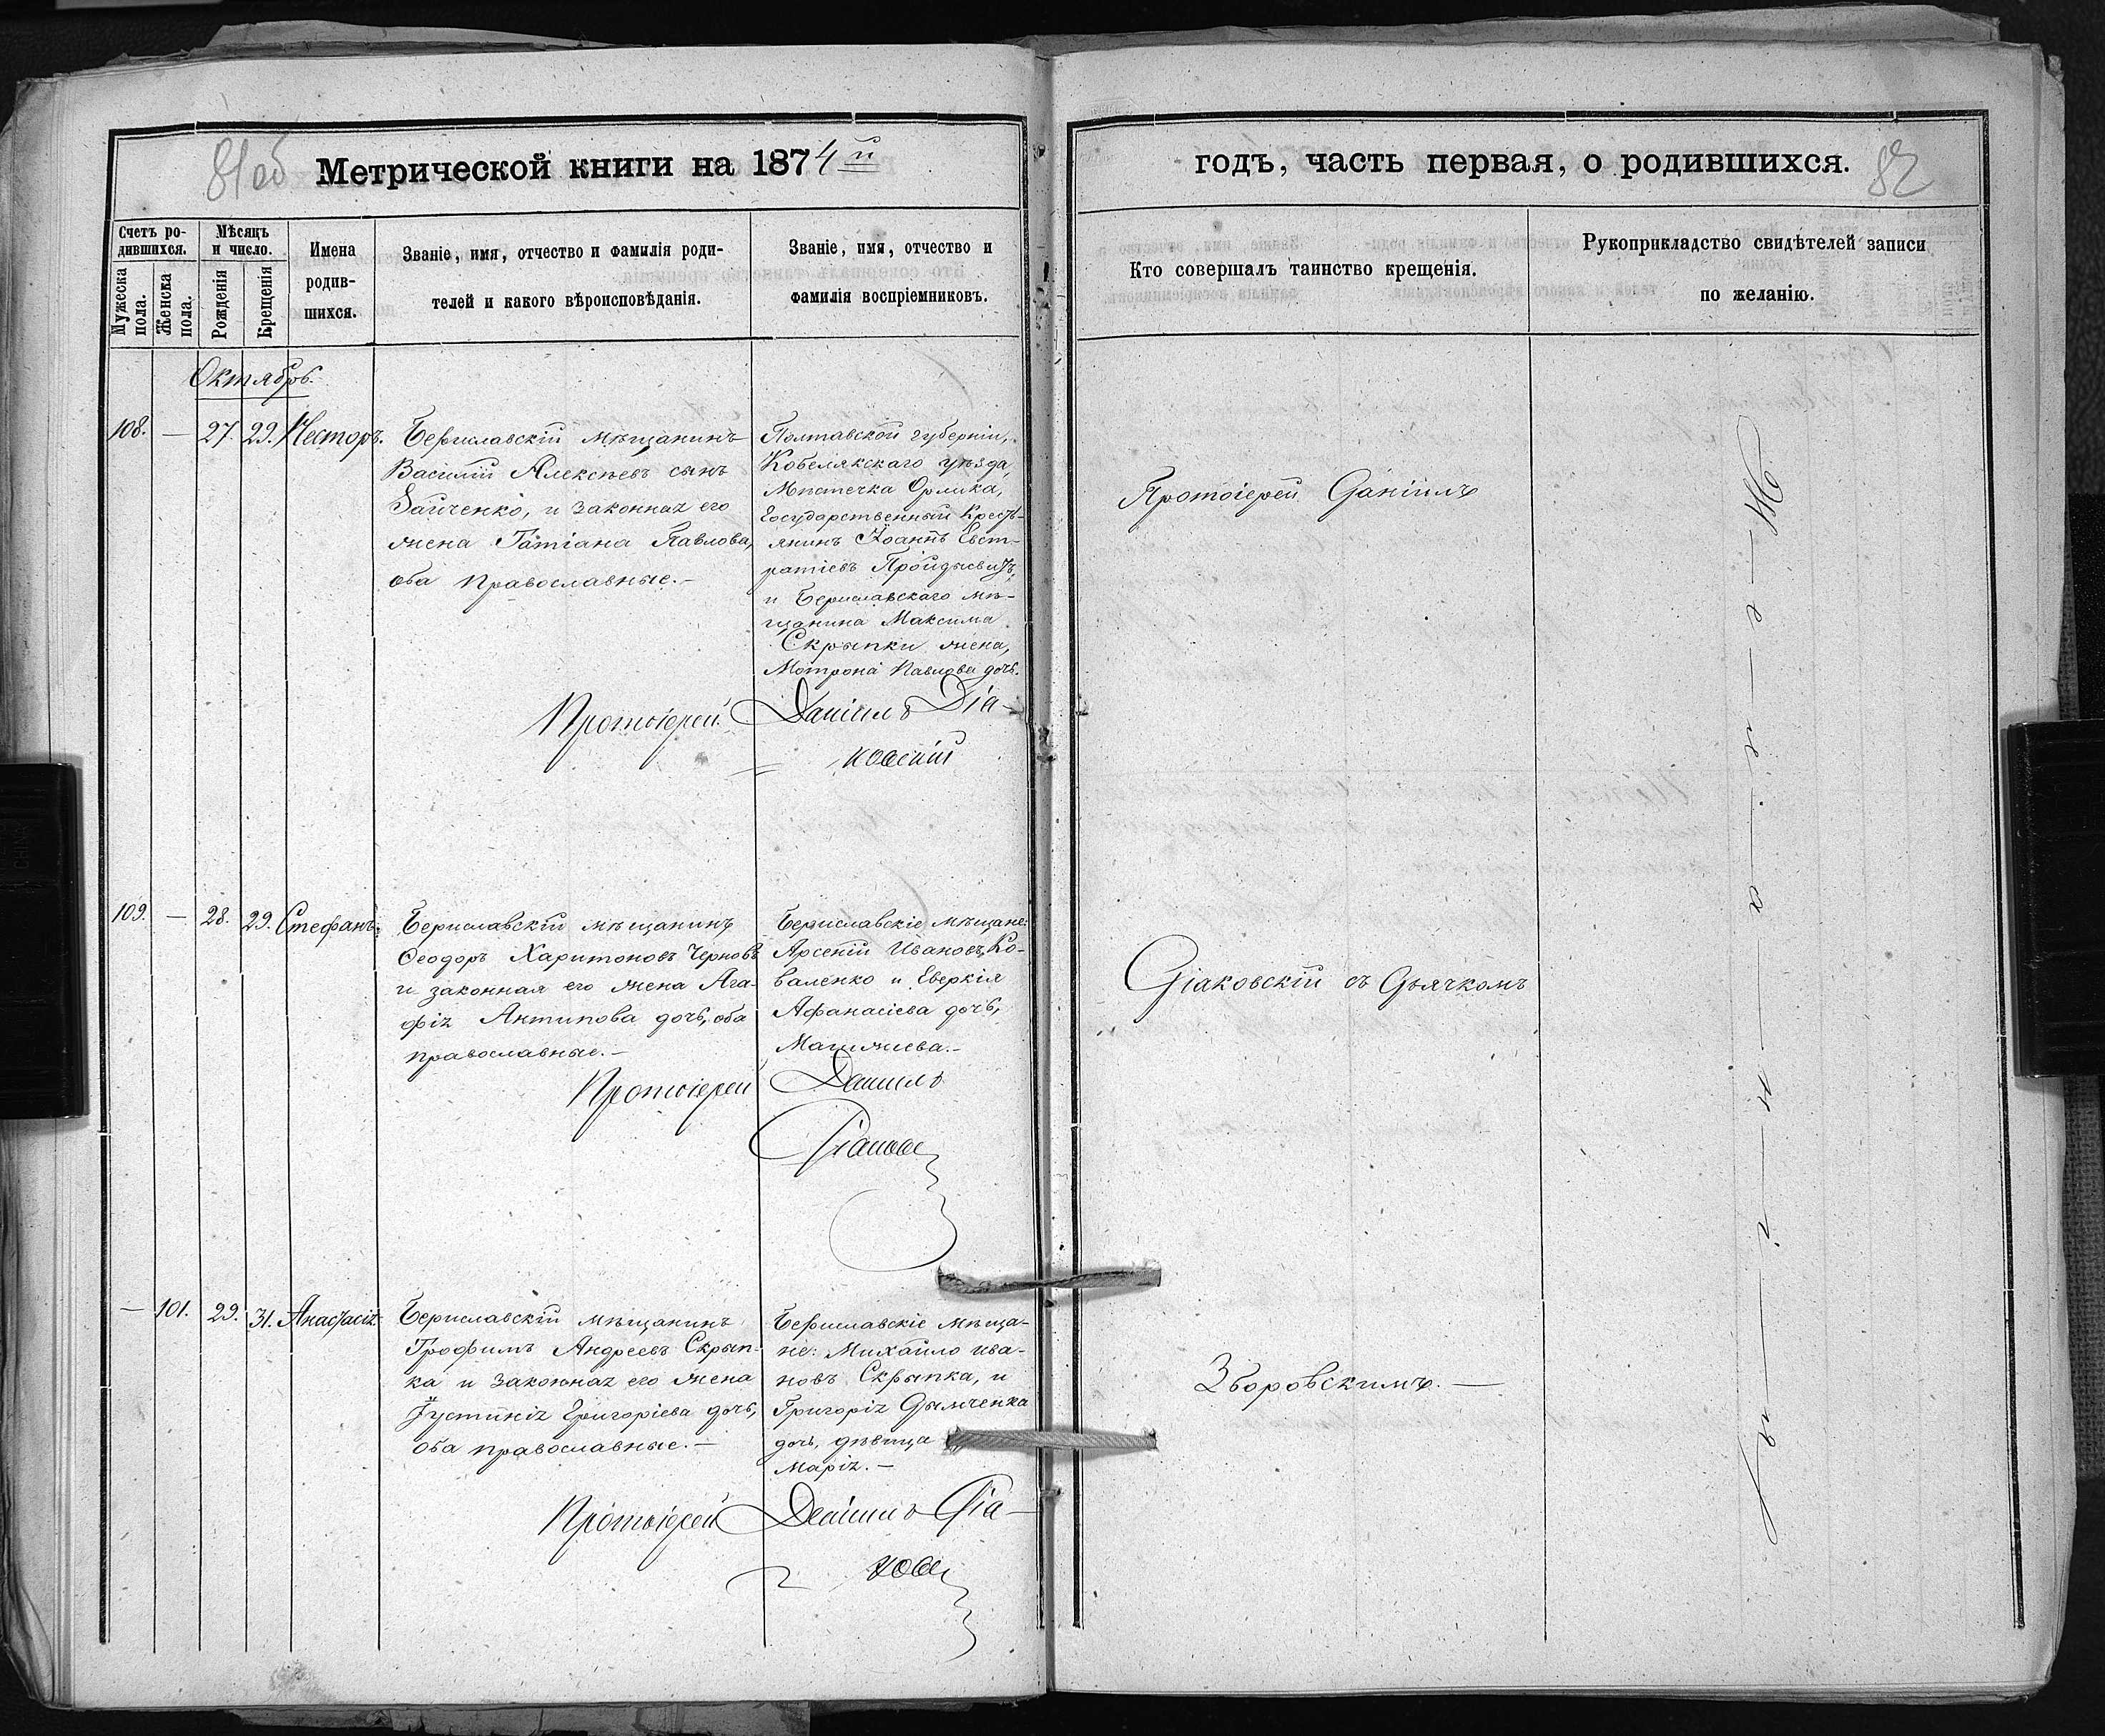 81об
Метрической книги на 1874й
Счетъ ро-
дившихся.
Мужеска
пола.
Женска
пола.
Мѣсяцъ
и число.
Рожденія
Крещенія
Имена
родив-
шихся.
Званіе, имя, отчество и фамилія роди-
телей и какого вѣроисповѣданія.
Званіе, имя, отчество и
фамилія воспріемниковъ.
Октябрь.
108. — 27. 29. Несторъ.
Бериславскій мѣщанинъ
Василій Алексѣевъ сынъ
Зайченко, и законная его
жена Татіана Павлова,
оба православные.—
Полтавской губерніи,
Кобелякскаго уѣзда,
Мѣстечка Орлика,
Государственный Кресть-
янинъ Іоаннъ Евст-
ратіевъ
и Бериславскаго мѣ-
щанина Максима
Скрыпки жена,
Мотрона Павлова дочь.
Протоіерей Даніилъ Діа-
ковскій
109. — 28. 29. Стефанъ.
Бериславскій мѣщанинъ
Ѳеодоръ Харитоновъ Черновъ
и законная его жена Ага-
фія Антипова дочь, оба
православные.—
Бериславскіе мѣщане:
Арсеній Ивановъ Ко-
валенко и Еверкія
Афанасіева дочь,
Протоіерей Даніилъ
Діаковс
— 101. 29. 31. Анастасія.
Бериславскій мѣщанинъ
Трофимъ Андреевъ Скрып-
ка и законная его жена
Іустинія Григоріева дочь,
оба православные.—
Бериславскіе Мѣща-
не: Михайло Ива-
новъ Скрыпка, и
Григорія Дымченка
дочь, дѣвица
Марія.—
Протоіерей Даніилъ Діа-
ковс
годъ, часть первая, о родившихся.
82
Кто совершалъ таинство крещенія.
Рукоприкладство свидѣтелей записи
по желанію.
Протоіерей Даніилъ
Діаковскій съ Дьячкомъ
Зборовскимъ.—